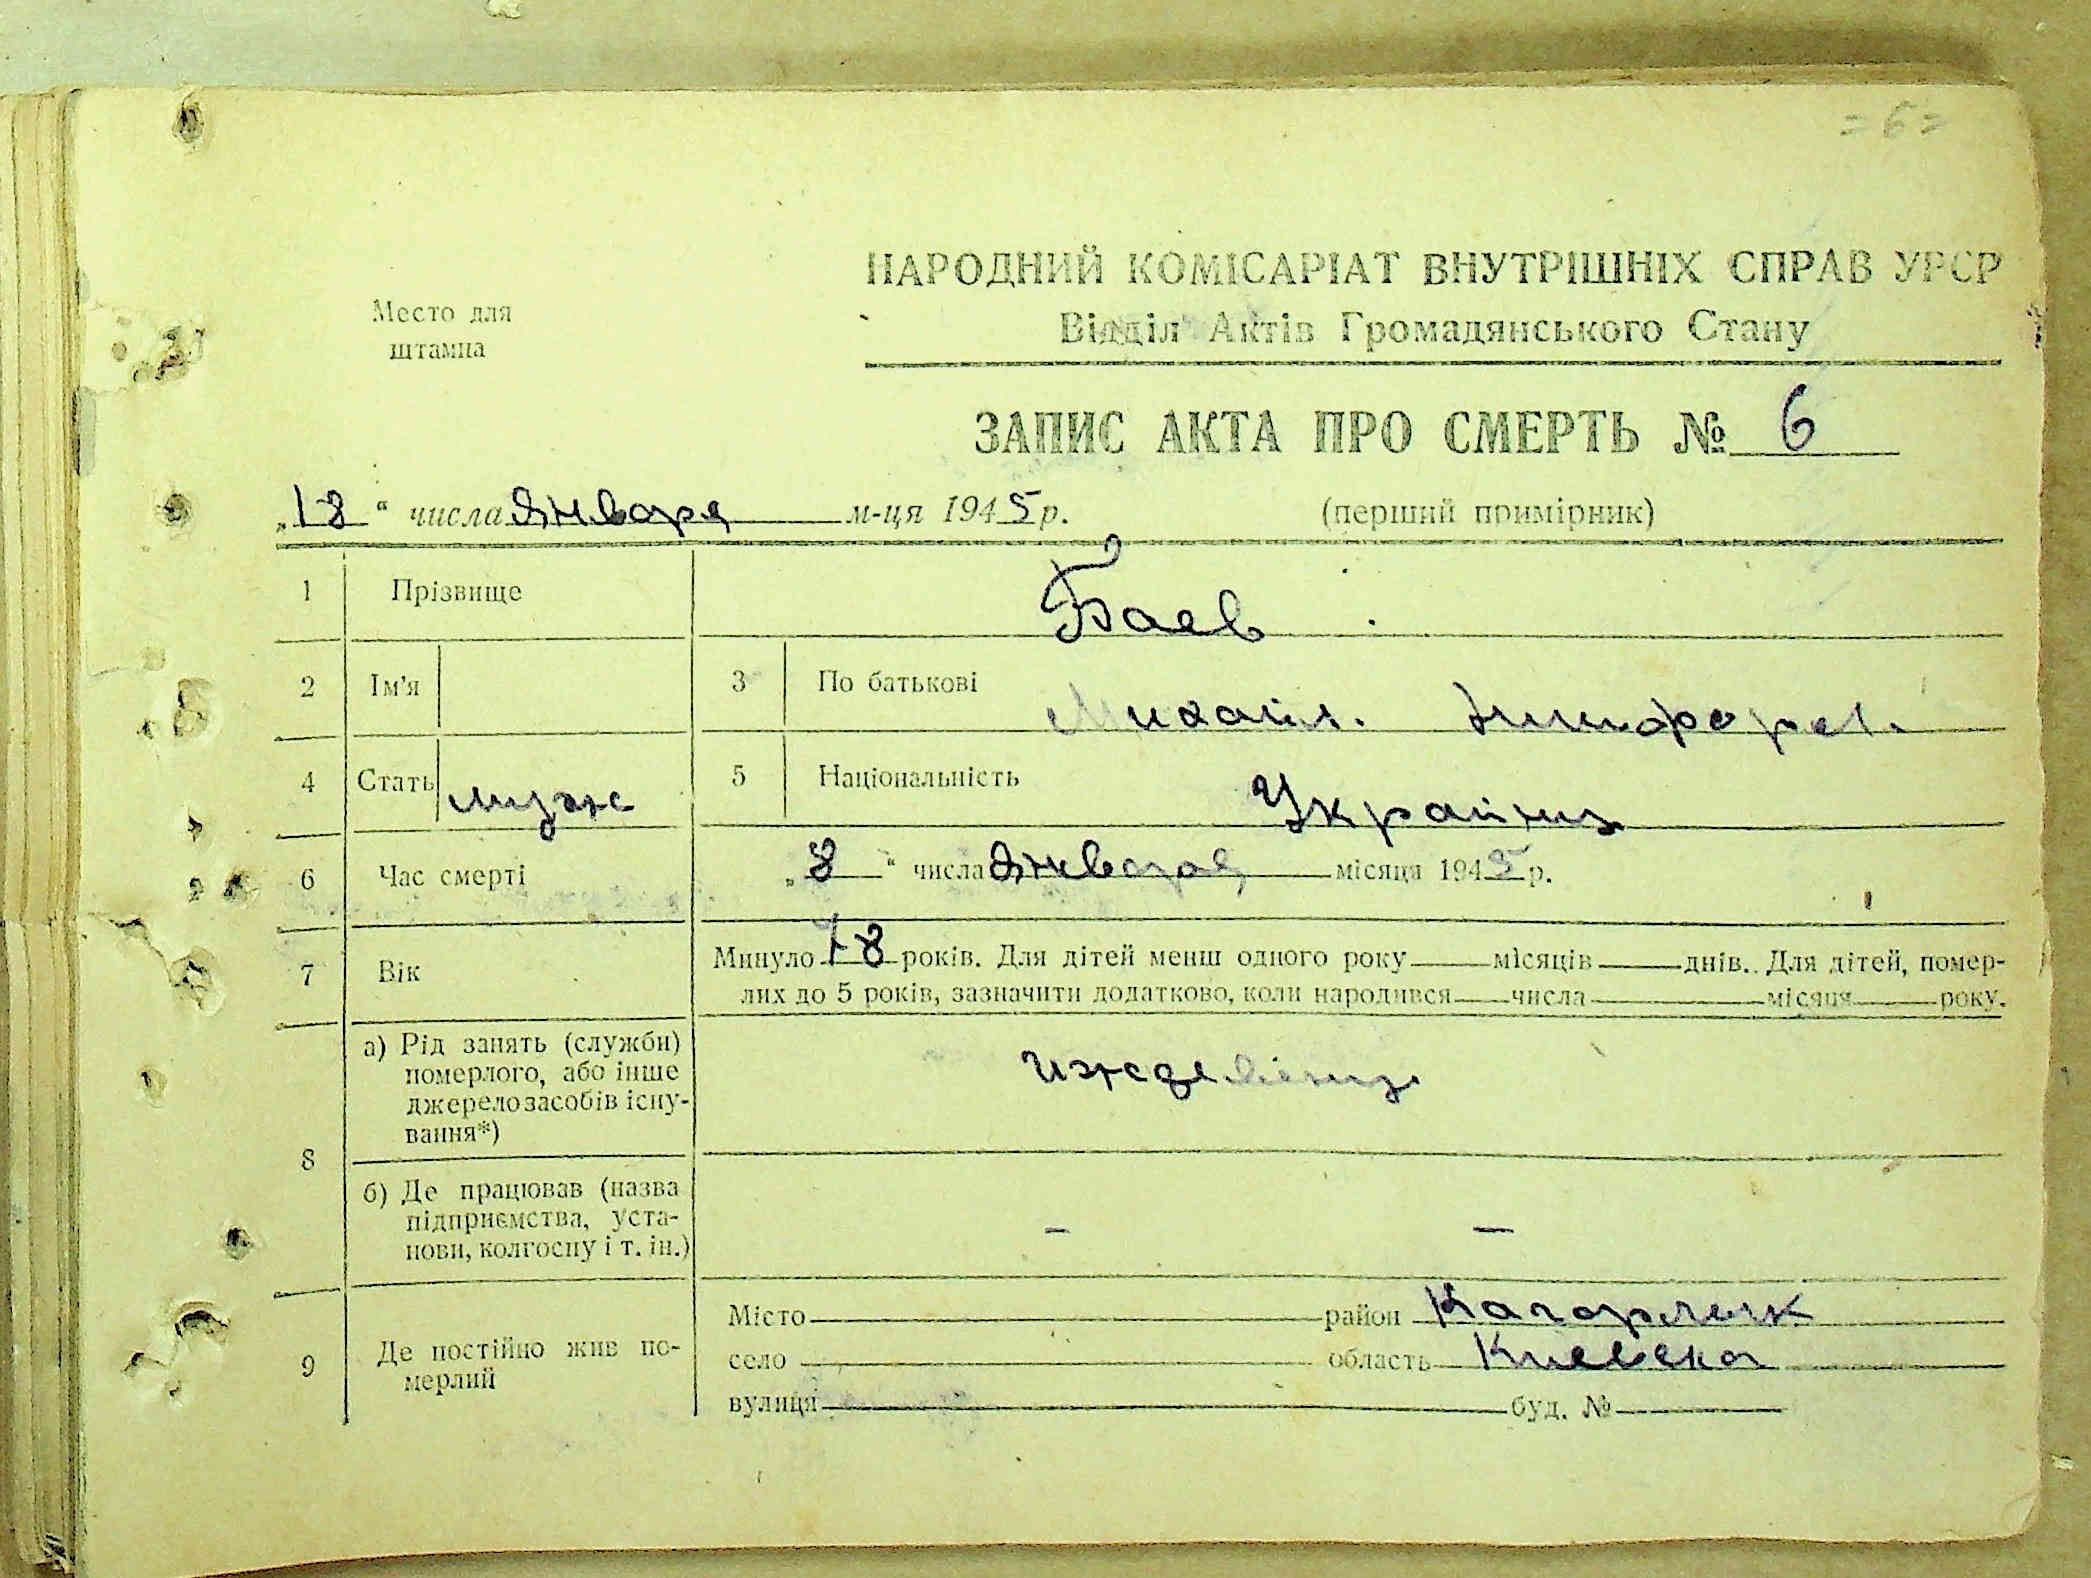 = 6 =
НАРОДНИЙ КОМІСАРІАТ ВНУТРІШНІХ СПРАВ УРСР
Место для
штампа
Відділ Актів Громадянського Стану
ЗАПИС АКТА ПРО СМЕРТЬ № 6
„18“ числа Января м-ця 1945 р. (перший примірник)
1 Прізвище Баев
2 Ім'я 3 По батькові Михаил. Никифоров.
4 Стать муж 5 Національність Украйнец
6 Час смерті „8“ числа Января місяця 1945 р.
7 Вік Минуло 78 років. Для дітей менш одного року місяців днів. Для дітей, помер-
лих до 5 років, зазначити додатково, коли народився числа місяця року.
8 а) Рід занять (служби)
померлого, або інше
джерело засобів існу-
вання*) иждевенец
б) Де працював (назва
підприємства, уста-
нови, колгоспу і т. ін.) — —
9 Де постійно жив по-
мерлий
Місто район Кагорлык
село область Киевска
вулиця буд. №